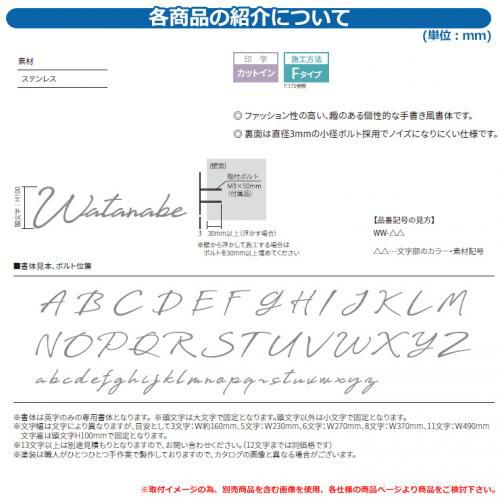 各商品の紹介について
(単位：mm)
素材
ステンレス
印字
カットイン
施工方法
Fタイプ
P.173参照
◎ファッション性の高い、趣のある個性的な手書き風書体です。
◎裏面は直径3mmの小径ボルト採用でノイズになりにくい仕様です。
頭文字：H100
Watanabe
(壁面)
取付ボルト
M3×50mm
(付属品)
3 30mm以上(浮かす場合)
※壁から浮かして施工する場合は
ボルトを30mm以上埋めてください
【品番記号の見方】
WW-△△
△△…文字部のカラー・素材記号
■書体見本、ボルト位置
A B C D E F G H I J K L M
N O P Q R S T U V W X Y Z
a b c d e f g h i j k l m n o p q r s t u v w x y z
※書体は英字のみの専用書体となります。※頭文字は大文字で固定となります。頭文字以外は小文字で固定となります。
※文字幅は文字により異なりますが、目安として3文字：W約160mm、5文字：W230mm、6文字：W270mm、8文字：W370mm、11文字：W490mm
文字高は頭文字H100mmで固定となります。
※13文字以上は別途見積もりとなりますので、お問い合わせください。(12文字までは同価格です)
※塗装は職人がひとつひとつ手作業で製作しておりますので、カタログの画像と異なる場合がございます。
※取付イメージの為、別売商品を含む画像を使用、各仕様の商品ページより商品をご検討下さい。